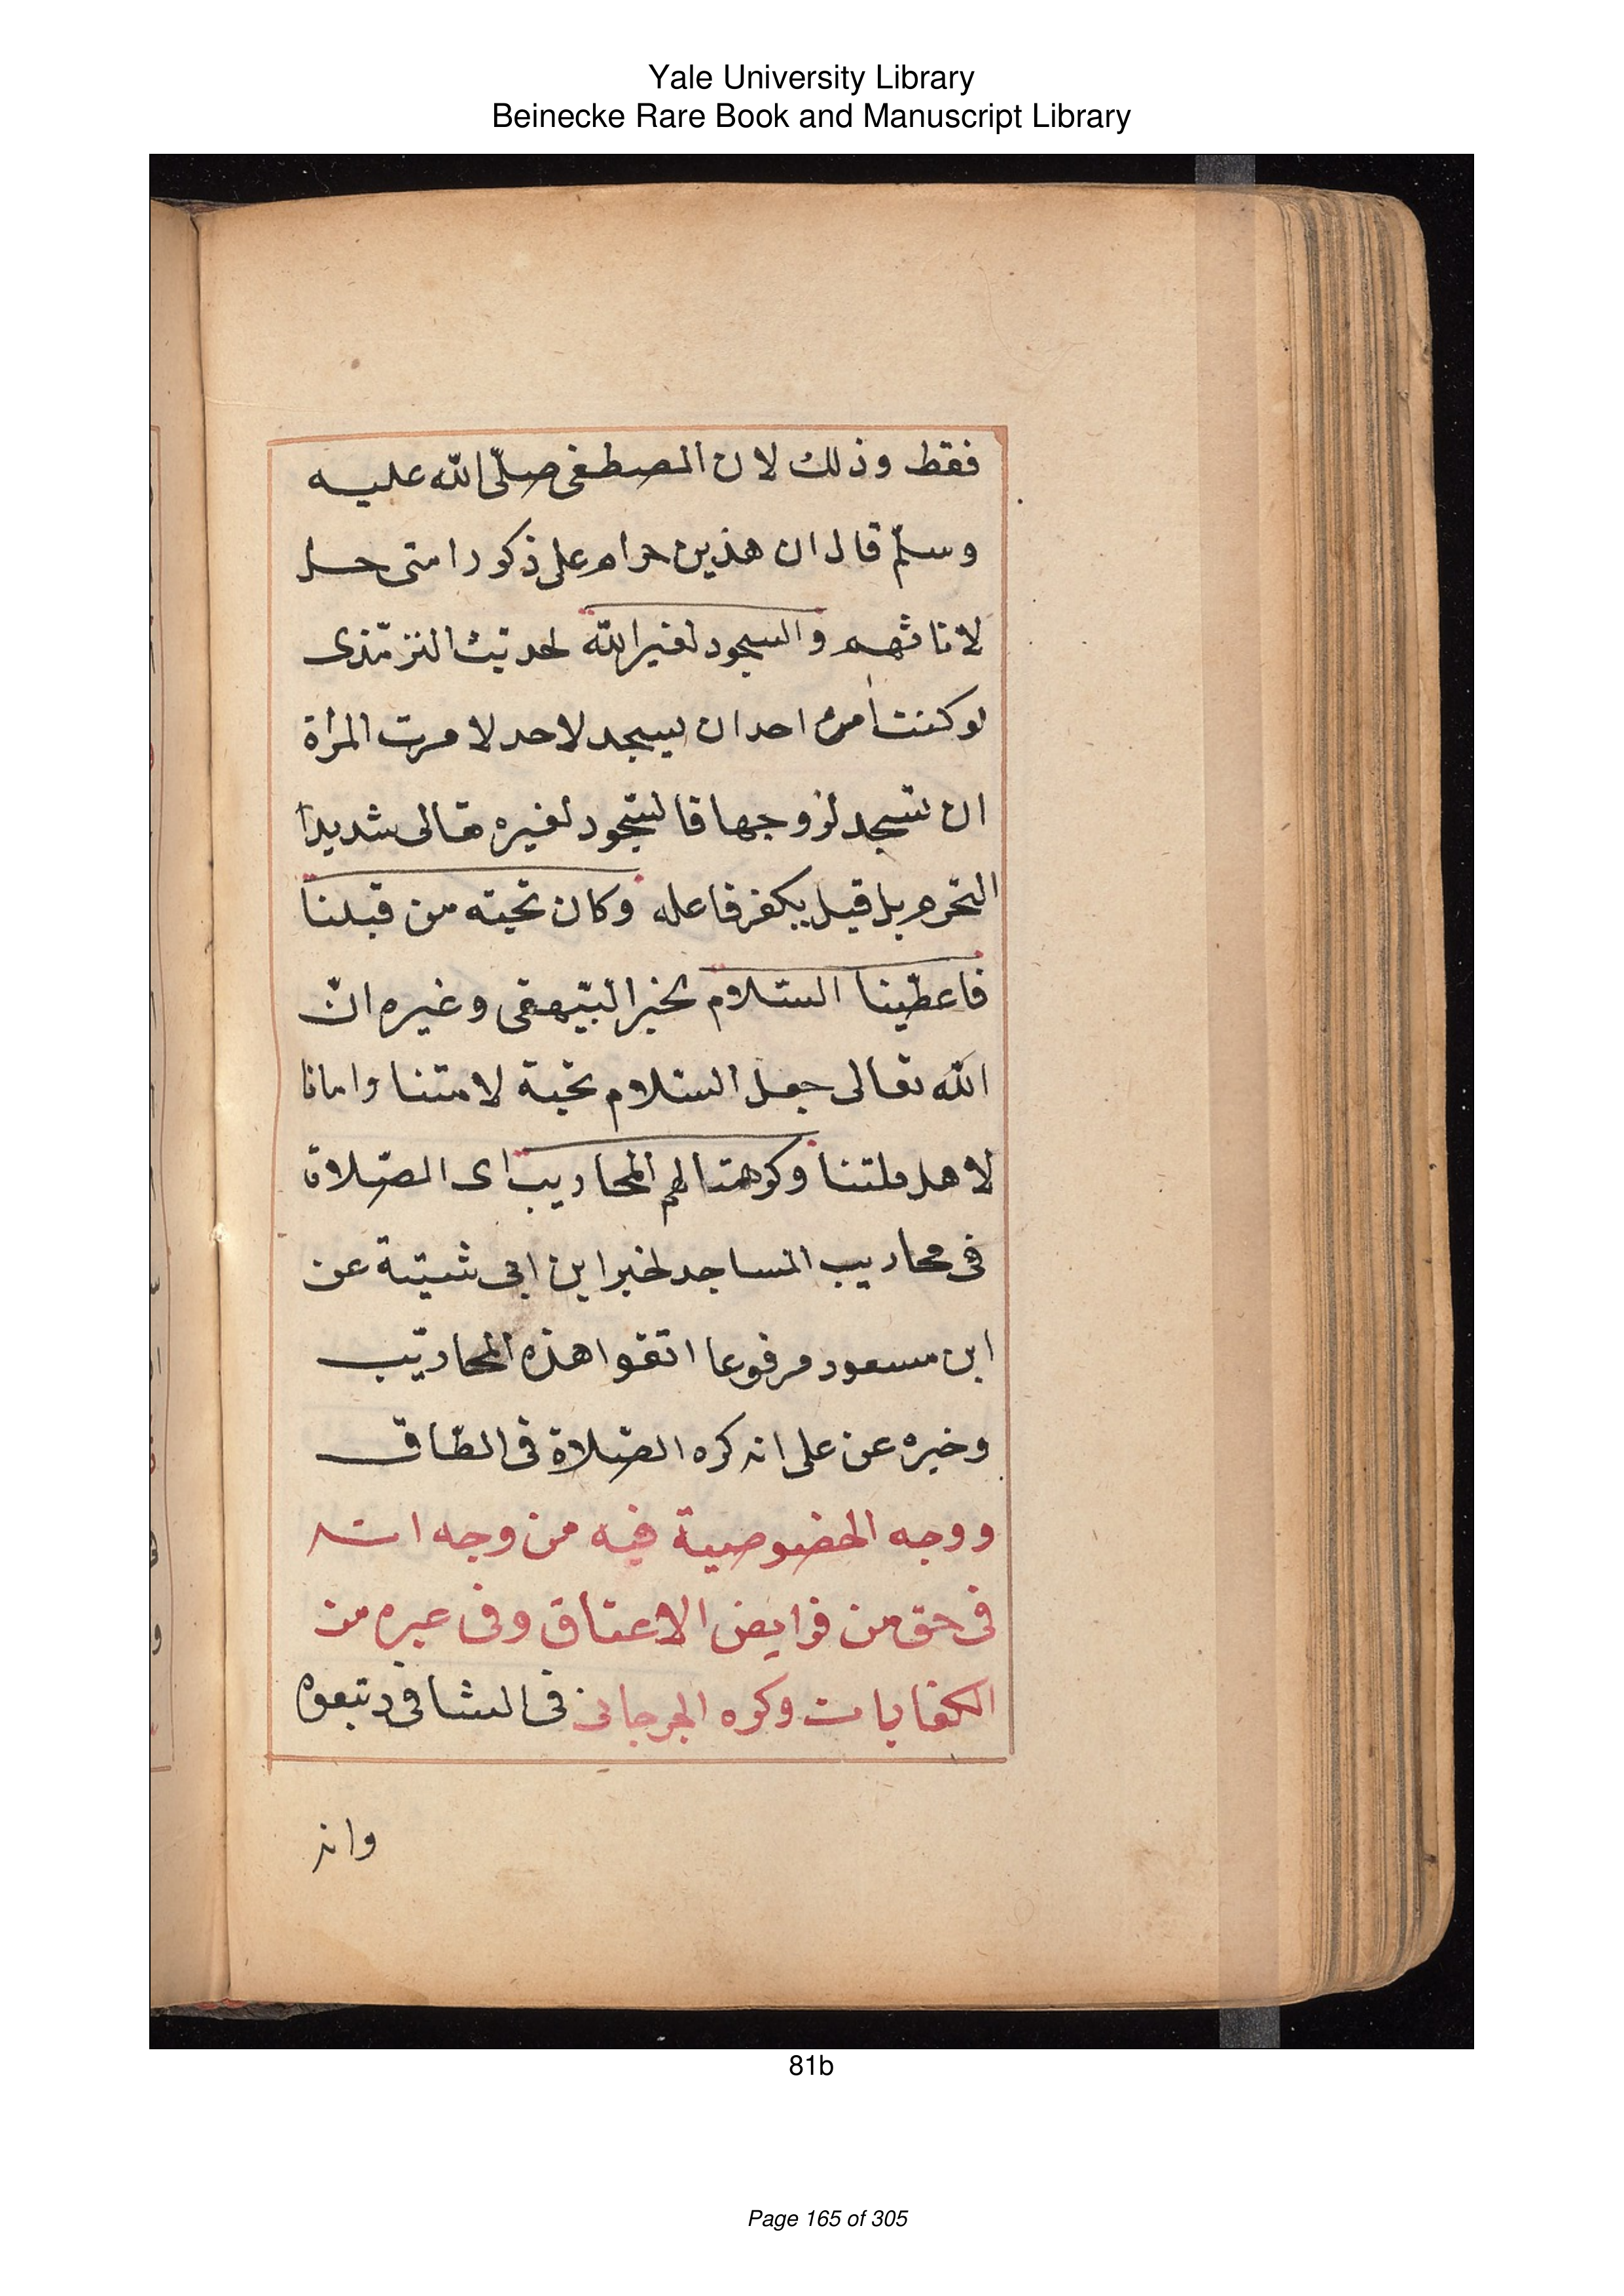 Yale University Library
Beinecke Rare Book and Manuscript Library
فقط وذلك لان المصطفى صلّى الله عليه
وسلّم قال ان هذين حرام على ذكور امتى حل
لاناثهم والسجود لغير الله لحديث الترمّذى
لو كنت أمر احدا ن يسجد لاحد لامرت المرأة
ان تسجد لزوجها فالسّجود لغيره تعالى شديدا
التحرم بل قيل يكفر فاعله وكان تحيته من قبلنا
فاعطّينا السّلام لخبر البيّهقى وغيره انّ
الله تعالى جعل السّلام تحية لامتنا وامانا
لاهل ملتنا وكرهتا لهم المحاريب اى الصّلاة
فى محاريب المساجد لخبر ابن ابى شيبة عن
ابن مسعود مرفوعا اتقوا هذه المحاريب
وخيره عن على انه كره الصّلاة فى الطّاق
ووجه الخضوصية فيه من وجه انه
فى حق من فرايض الاعتاق وفى عيره من
الكفايات وكره الجرجانى فى الشافى وتبعوه
وانه
81b
Page 165 of 305